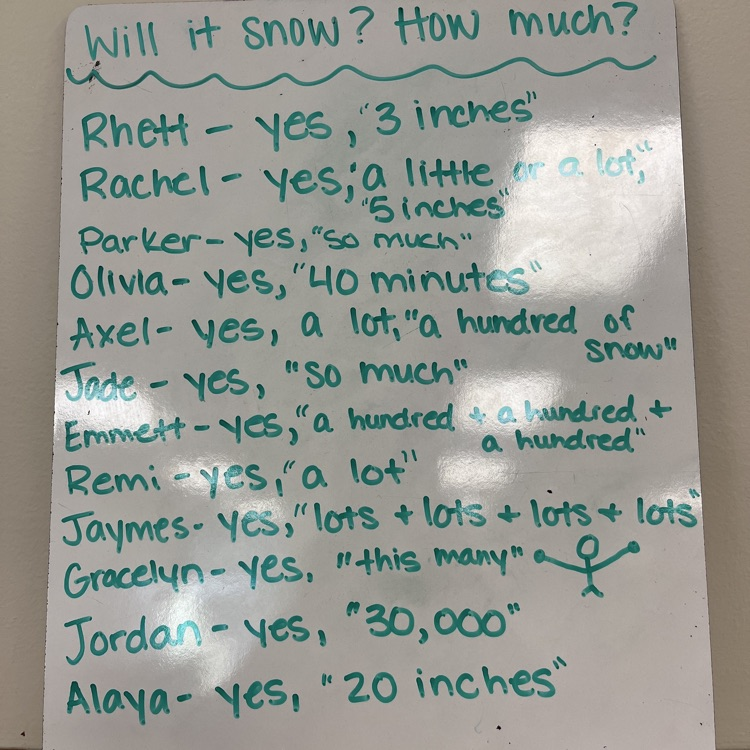 Will it snow? How much?
Rhett - yes, "3 inches"
Rachel - yes, "a little or a lot,"
"5 inches"
Parker - yes, "so much"
Olivia - yes, "40 minutes"
Axel - yes, a lot, "a hundred of
snow"
Jade - yes, "so much"
Emmett - yes, "a hundred + a hundred +
a hundred"
Remi - yes, "a lot"
Jaymes - yes, "lots + lots + lots + lots"
Gracelyn - yes, "this many"
Jordan - yes, "30,000"
Alaya - yes, "20 inches"